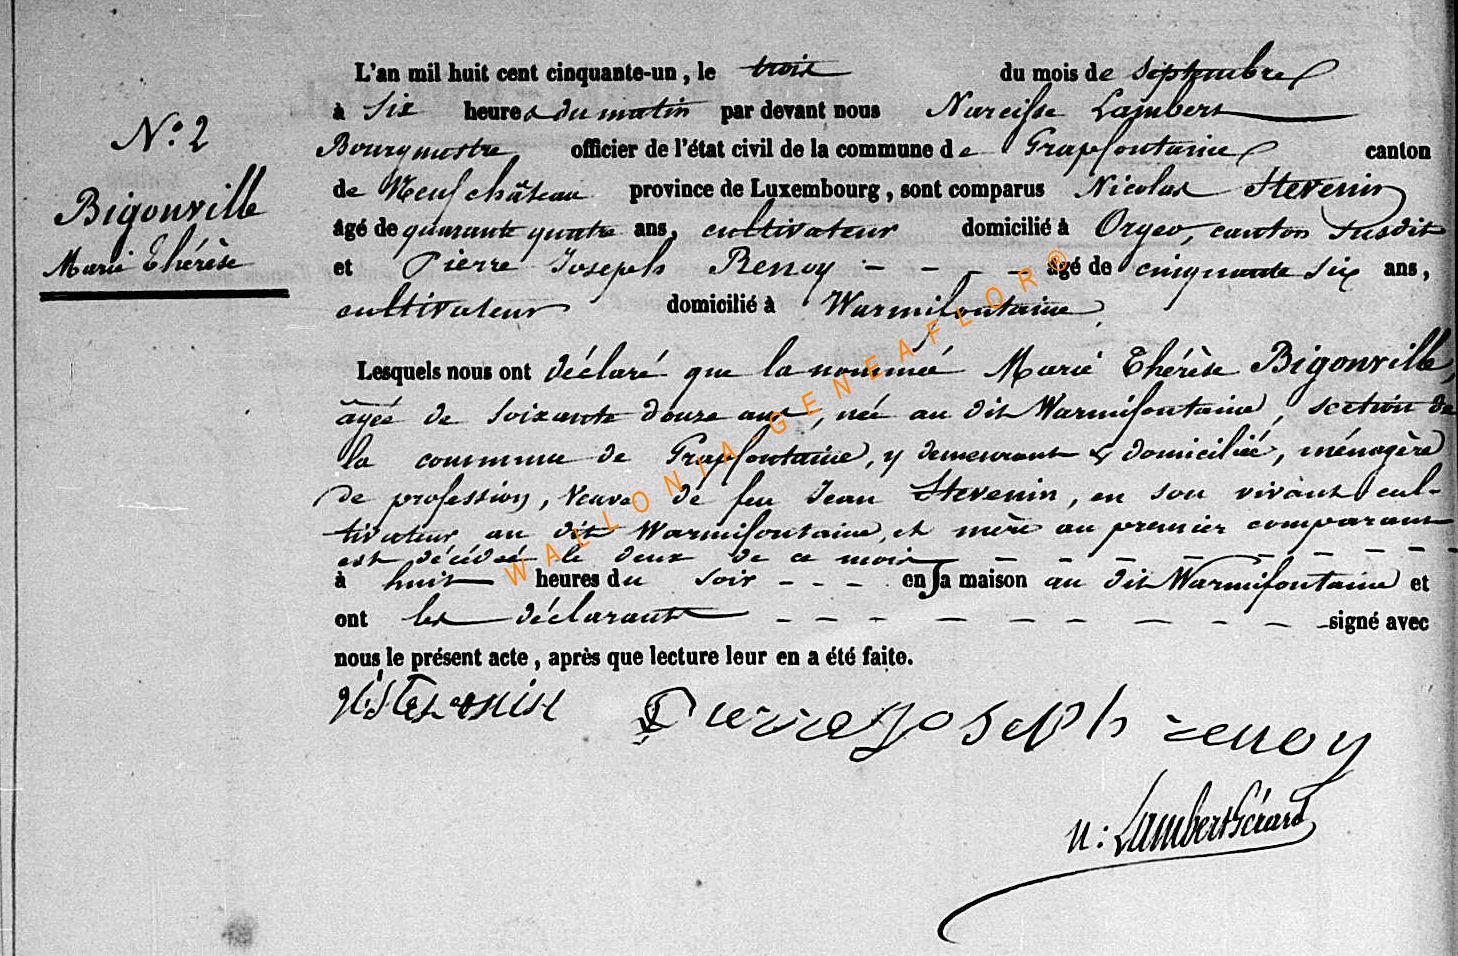 N.o 2
Bigonville
Marie Thérèse
L'an mil huit cent cinquante-un, le trois du mois de septembre
à six heures du matin par devant nous Narcisse Lambert
Bourgmestre officier de l'état civil de la commune de Grapfontaine canton
de Neufchâteau province de Luxembourg, sont comparus Nicolas Stevenin
âgé de quarante quatre ans, cultivateur domicilié à Orgeo, canton susdit
et Pierre Joseph Renoy - - - - âgé de cinquante six ans,
cultivateur domicilié à Warmifontaine,
Lesquels nous ont déclaré que la nommée Marie Thérèse Bigonville,
âgée de soixante douze ans, née au dit Warmifontaine, section de
la commune de Grapfontaine, y demeurant & domiciliée, ménagère
de profession, veuve de feu Jean Stevenin, en son vivant cul-
tivateur au dit Warmifontaine, et mère au premier comparant
est décédée le deux de ce mois - - - - - - - - -
à huit heures du soir - - - en sa maison au dit Warmifontaine et
ont les déclarants - - - - - - - - - signé avec
nous le présent acte, après que lecture leur en a été faite.
N: Stevenin Pierre Joseph renoy
N: Lambert Gérard
WALLONIA-GENEAFLOR®